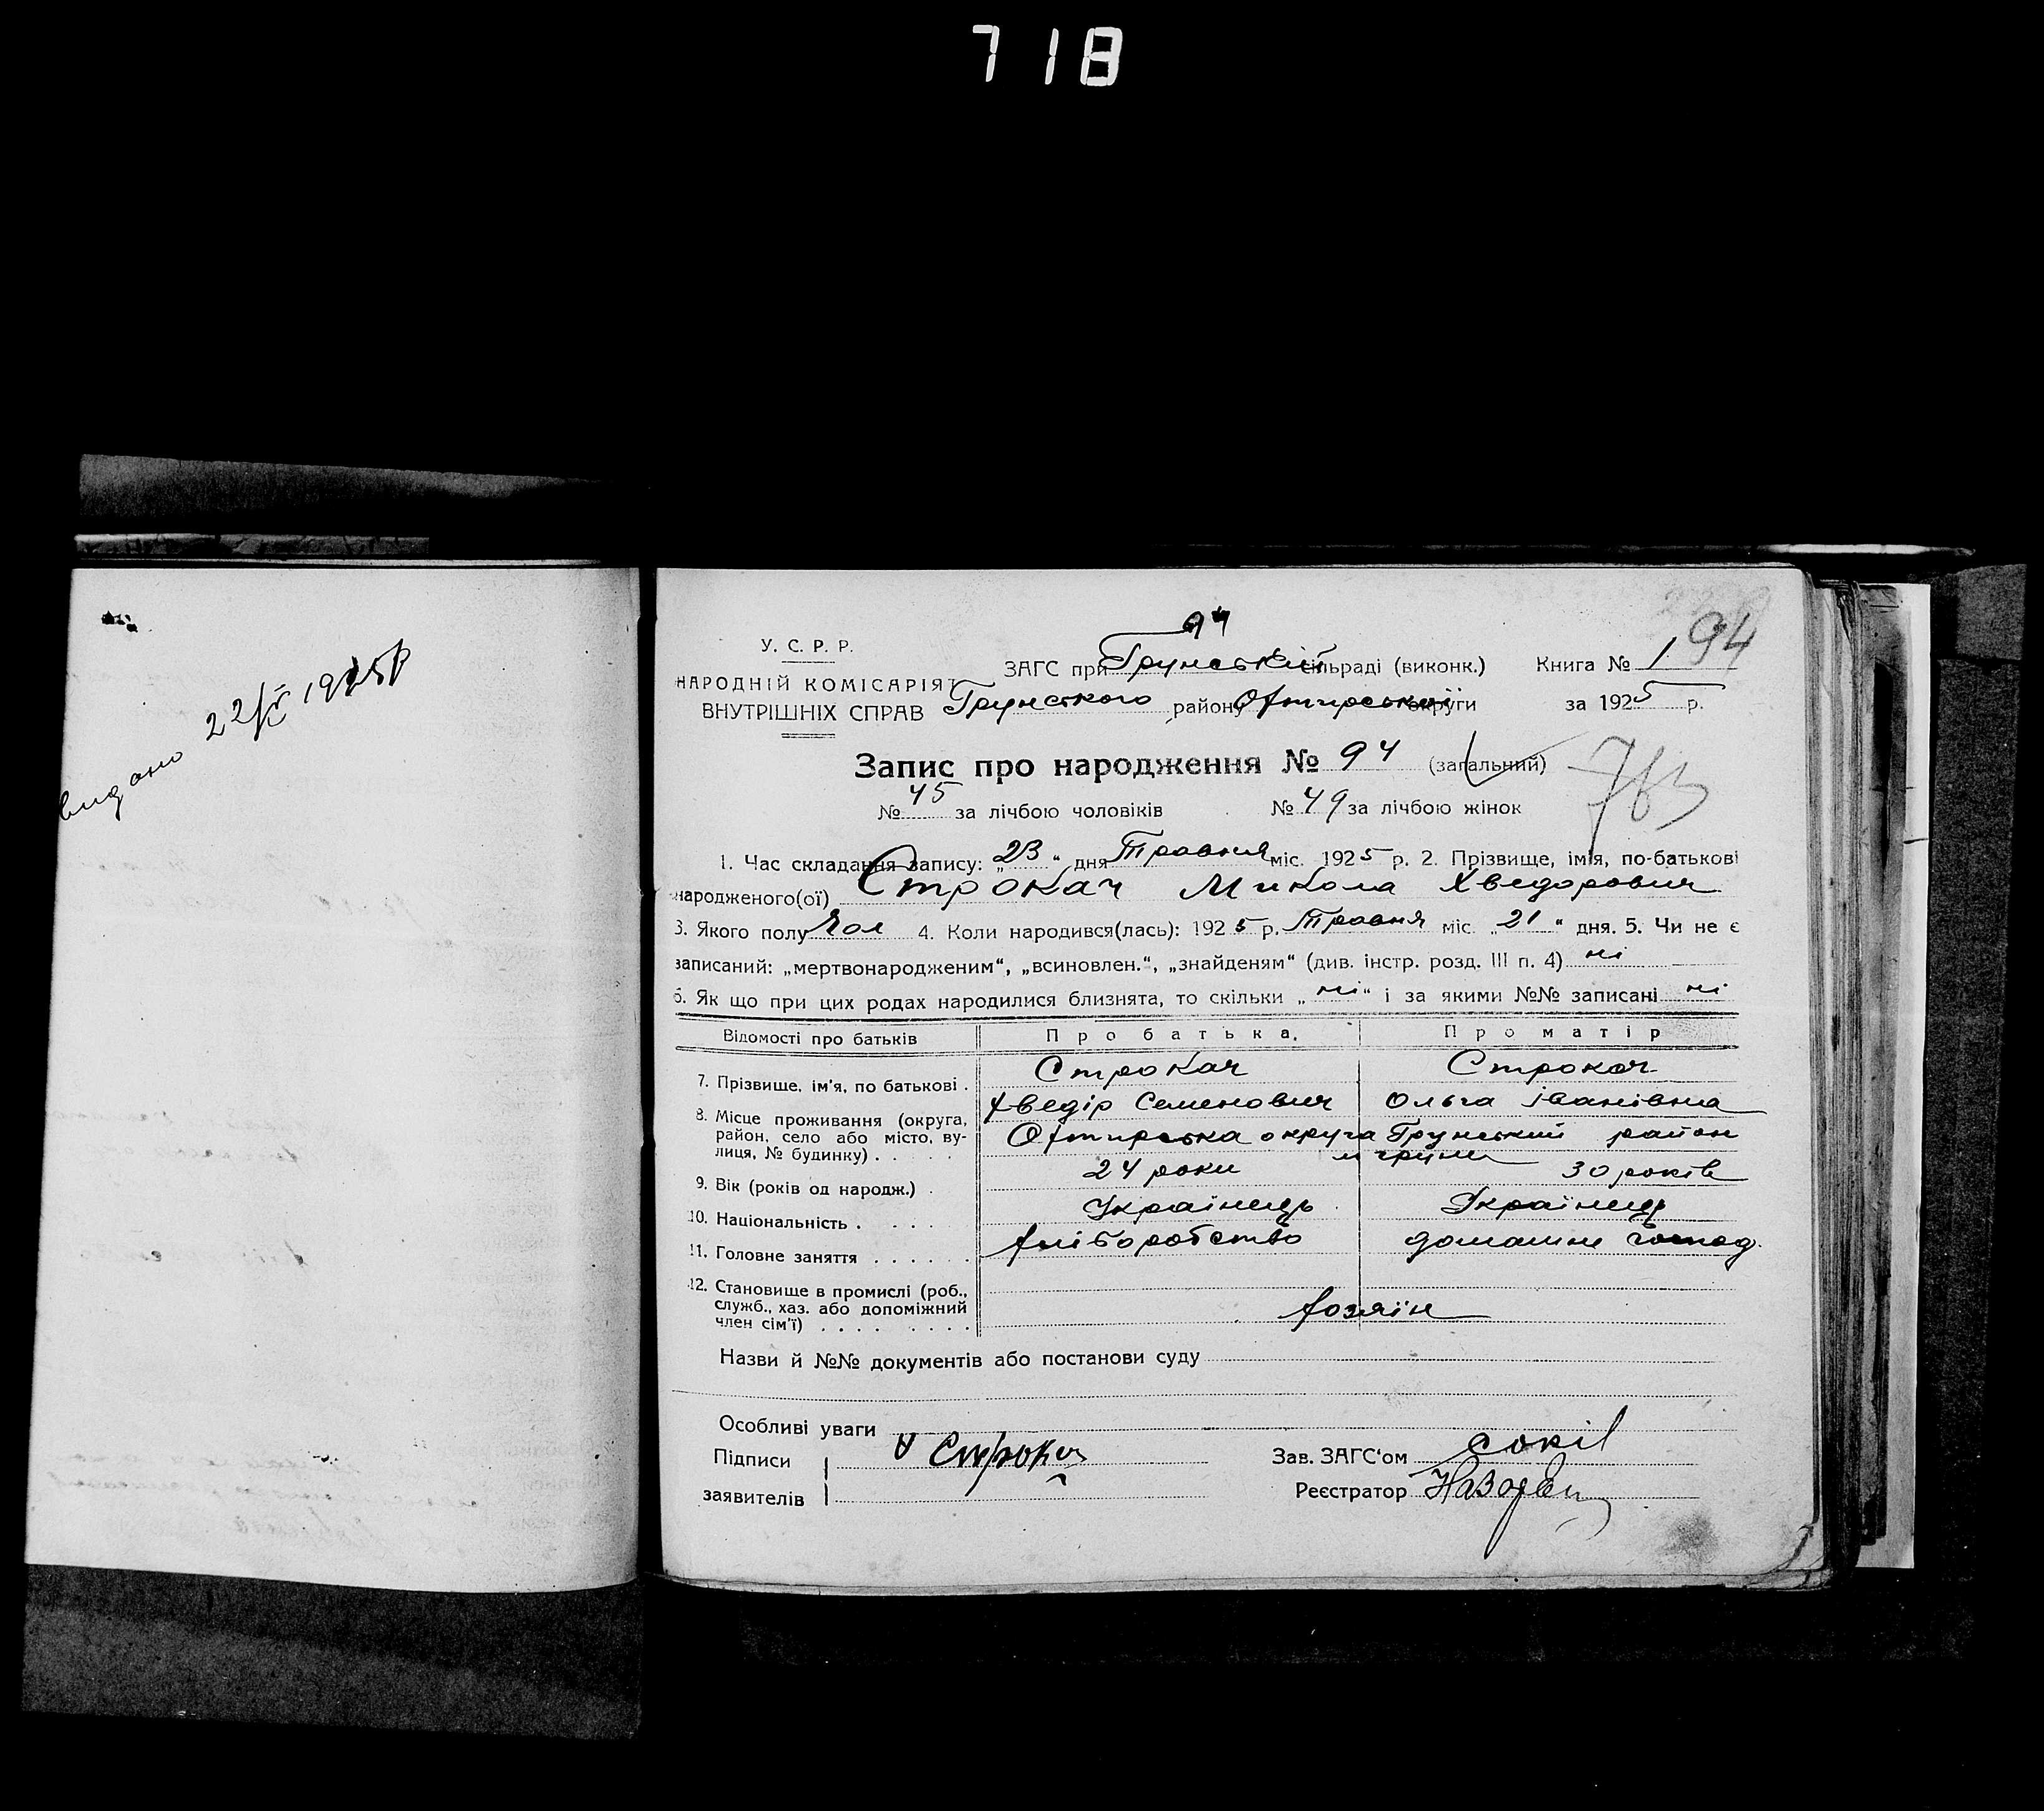 718
видано 22/V 1925р
94
94
У. С. Р. Р.
НАРОДНІЙ КОМІСАРІЯТ
ВНУТРІШНІХ СПРАВ
ЗАГС при Грунській сільраді (виконк.) Книга № 1
Грунського району Охтирської округи за 1925 р.
Запис про народження № 94 (загальний)
763
№ 45 за лічбою чоловіків № 49 за лічбою жінок
1. Час складання запису: „23“ дня Травня міс. 1925 р. 2. Прізвище, імя, по-батькові
народженого(ої) Строкач Микола Хведорович
3. Якого полу Чол 4. Коли народився(лась): 1925 р. Травня міс. „21“ дня. 5. Чи не є
записаний: „мертвонародженим“, „всиновлен.“, „знайденям“ (див. інстр. розд. III п. 4) ні
6. Як що при цих родах народилися близнята, то скільки „ні“ і за якими №№ записані ні
Відомості про батьків Про батька. Про матір
7. Прізвище, ім'я, по батькові . Строкач Строкач
Хведір Семенович Ольга Іванівна
8. Місце проживання (округа,
район, село або місто, ву-
лиця, № будинку) . . . . .
Охтирська округа Грунський район
м Грунь
9. Вік (років од народж.) . 24 роки 30 років
10. Національність . . . . Українець Українець
11. Головне заняття . . . . . . хліборобство домашнє господ.
12. Становище в промислі (роб.,
служб., хаз. або допоміжний
член сім'ї) . . . . . . . .
хозяїн
Назви й №№ документів або постанови суду
Особливі уваги
Підписи
заявителів
Строкач
Зав. ЗАГС'ом Сокіл
Реєстратор